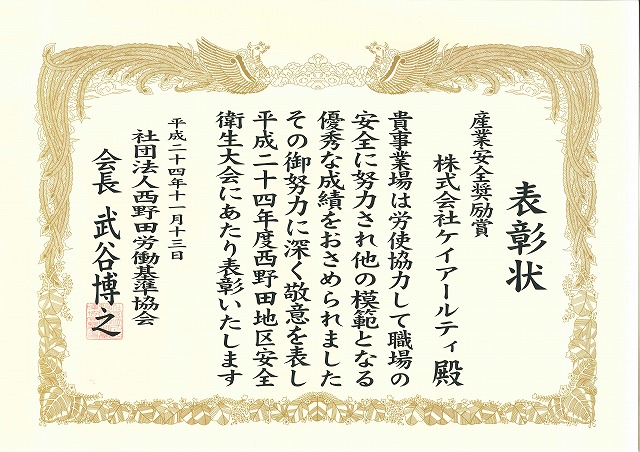 表彰状
産業安全奨励賞
株式会社ケイアールティ殿
貴事業場は労使協力して職場の
安全に努力され他の模範となる
優秀な成績をおさめられました
その御努力に深く敬意を表し
平成二十四年度西野田地区安全
衛生大会にあたり表彰いたします
平成二十四年十一月十三日
社団法人西野田労働基準協会
会長 武谷博之